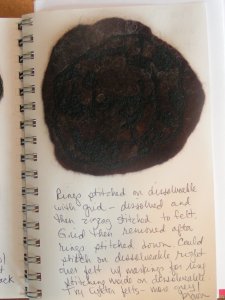 Rings stitched on dissolveable
with grid – dissolved and
then zigzag stitched to felt.
Grid then removed after
rings stitched down. Could
stitch on dissolveable right
over felt w/ markings for ling
stitching made on dissolveable.
Try lighter felts – more grey!
brown